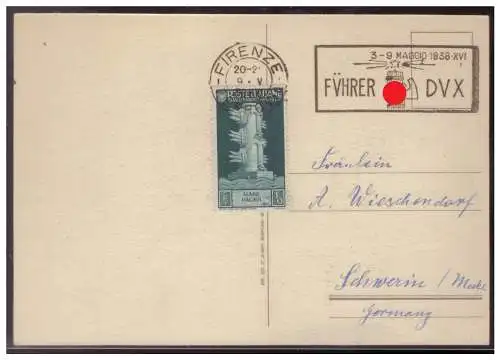 FIRENZE
20-21
9 · V
3-9 MAGGIO·1938-XVI
FÜHRER DVX
POSTE ITALIANE
Fräulein
A. Wieschendorf
Schwerin / Meckl
Germany